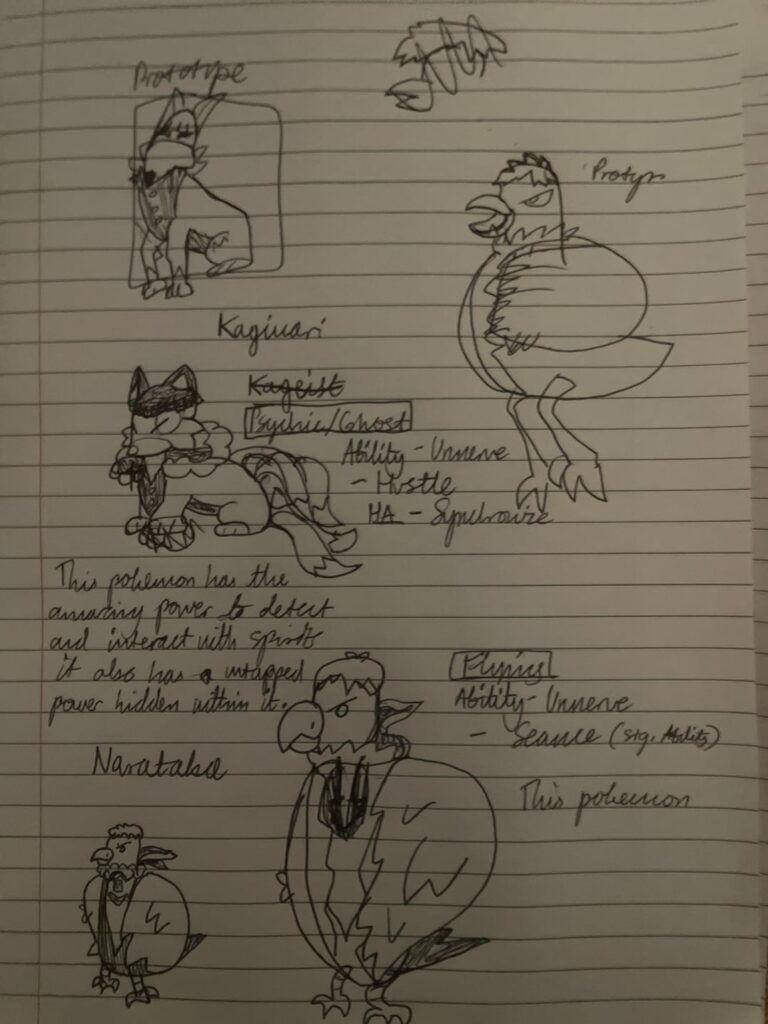 Prototype
Protyp
Kaginari
Kageist
Psychic/Ghost
Ability - Unnerve
- Hustle
HA - Synchronize
This pokemon has the
amazing power to detect
and interact with spirits
it also has a untapped
power hidden within it.
Flying
Ability - Unnerve
- Seance (sig. Ability)
This pokemon
Narataka